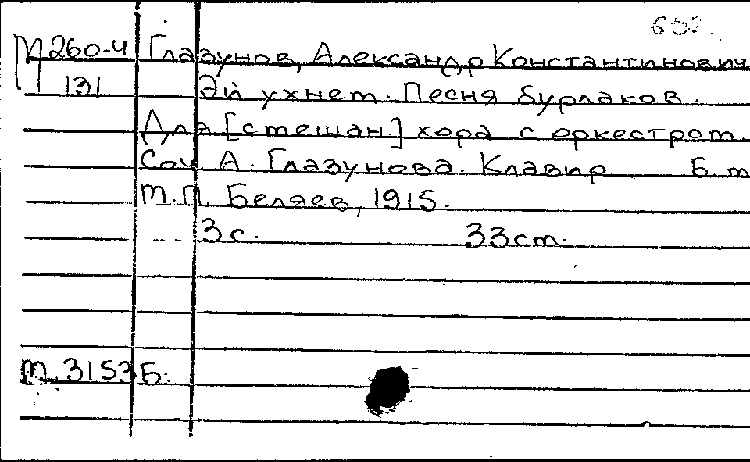 М 260-4 Глазунов, Александр Константинович
131 Эй ухнет. Песня бурлаков.
Для [смешан] хора с оркестром.
Соч А. Глазунова. Клавир Б. м
М.П. Беляев, 1915.
3 с. 33 cm.
М. 3153 Б.